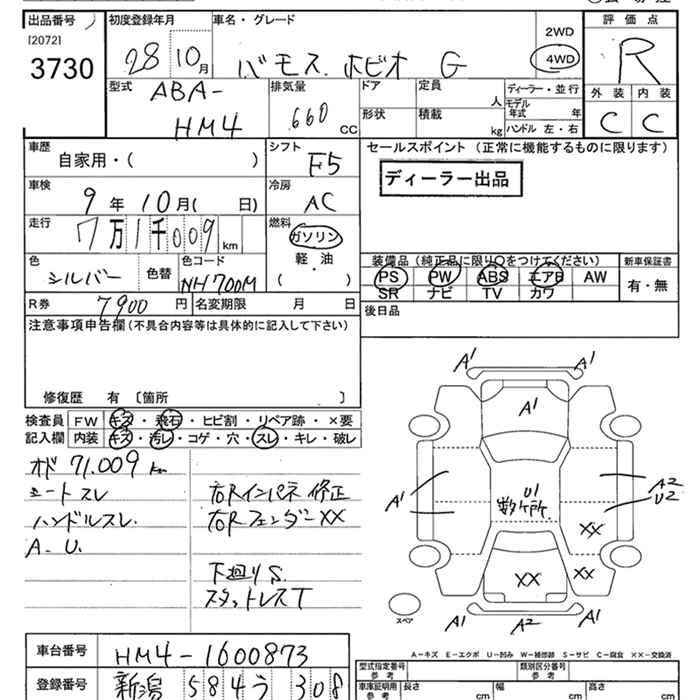 出品番号 初度登録年月 車名・グレード 2WD 評価点
[2072] 3730 28 10月 バモス ホビオ G 4WD R
型式 排気量 ドア 定員 人 ディーラー・並行 外装 内装
ABA-HM4 660 CC 形状 積載 kg モデル年式 年 C C
ハンドル 左・右
車歴 シフト セールスポイント (正常に機能するものに限ります)
自家用・( ) F5 ディーラー出品
車検 冷房
9年 10月( 日) AC
走行 燃料
7万1千009km ガソリン
軽油
・
( )
色 色替 色コード 装備品(純正品に限り○をつけてください) 新車保証書
シルバー NH700M PS PW ABS エアB AW 有・無
SR ナビ TV カワ
R券 7900円 名変期限 月 日 後日品
注意事項申告欄(不具合内容等は具体的に記入して下さい)
修復歴 有 〔箇所 〕
検査員 FW キズ・飛石・ヒビ割・リペア跡・×要
記入欄 内装 キズ・汚レ・コゲ・穴・スレ・キレ・破レ
オド 71.009 km
シートスレ 右Rインパネ 修正
ハンドルスレ 右Rフェンダー XX
A.U.
下廻りS
スタットレスT
A1 A1
A1
A1 U1 数ヶ所 A2 U2
XX
XX XX
A1 A2 A1
スペア
A-キズ E-エクボ U-凹み W-補修跡 S-サビ C-腐食 ××-交換済
車台番号 HM4-1600873
型式指定番号 参考 類別区分番号 参考
登録番号 新潟 584 う 308
車庫証明用 参考 長さ cm 幅 cm 高さ cm